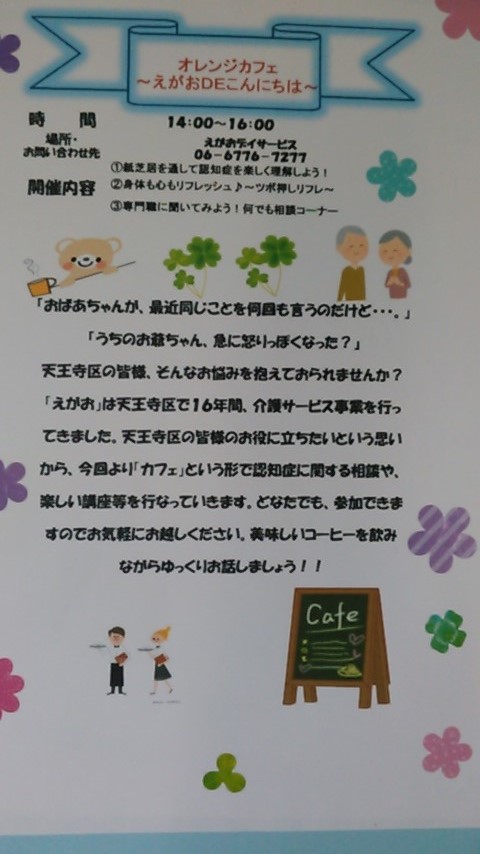 オレンジカフェ
～えがおDEこんにちは～
時　間　14:00～16:00
場所・
お問い合わせ先
えがおデイサービス
06-6776-7277
開催内容
①紙芝居を通して認知症を楽しく理解しよう！
②身体も心もリフレッシュ♪～ツボ押しリフレ～
③専門職に聞いてみよう！何でも相談コーナー
「おばあちゃんが、最近同じことを何回も言うのだけど・・・。」
「うちのお爺ちゃん、急に怒りっぽくなった？」
天王寺区の皆様、そんなお悩みを抱えておられませんか？
「えがお」は天王寺区で16年間、介護サービス事業を行っ
てきました。天王寺区の皆様のお役に立ちたいという思い
から、今回より「カフェ」という形で認知症に関する相談や、
楽しい講座等を行なっていきます。どなたでも、参加できま
すのでお気軽にお越しください。美味しいコーヒーを飲み
ながらゆっくりお話しましょう！！
Cafe